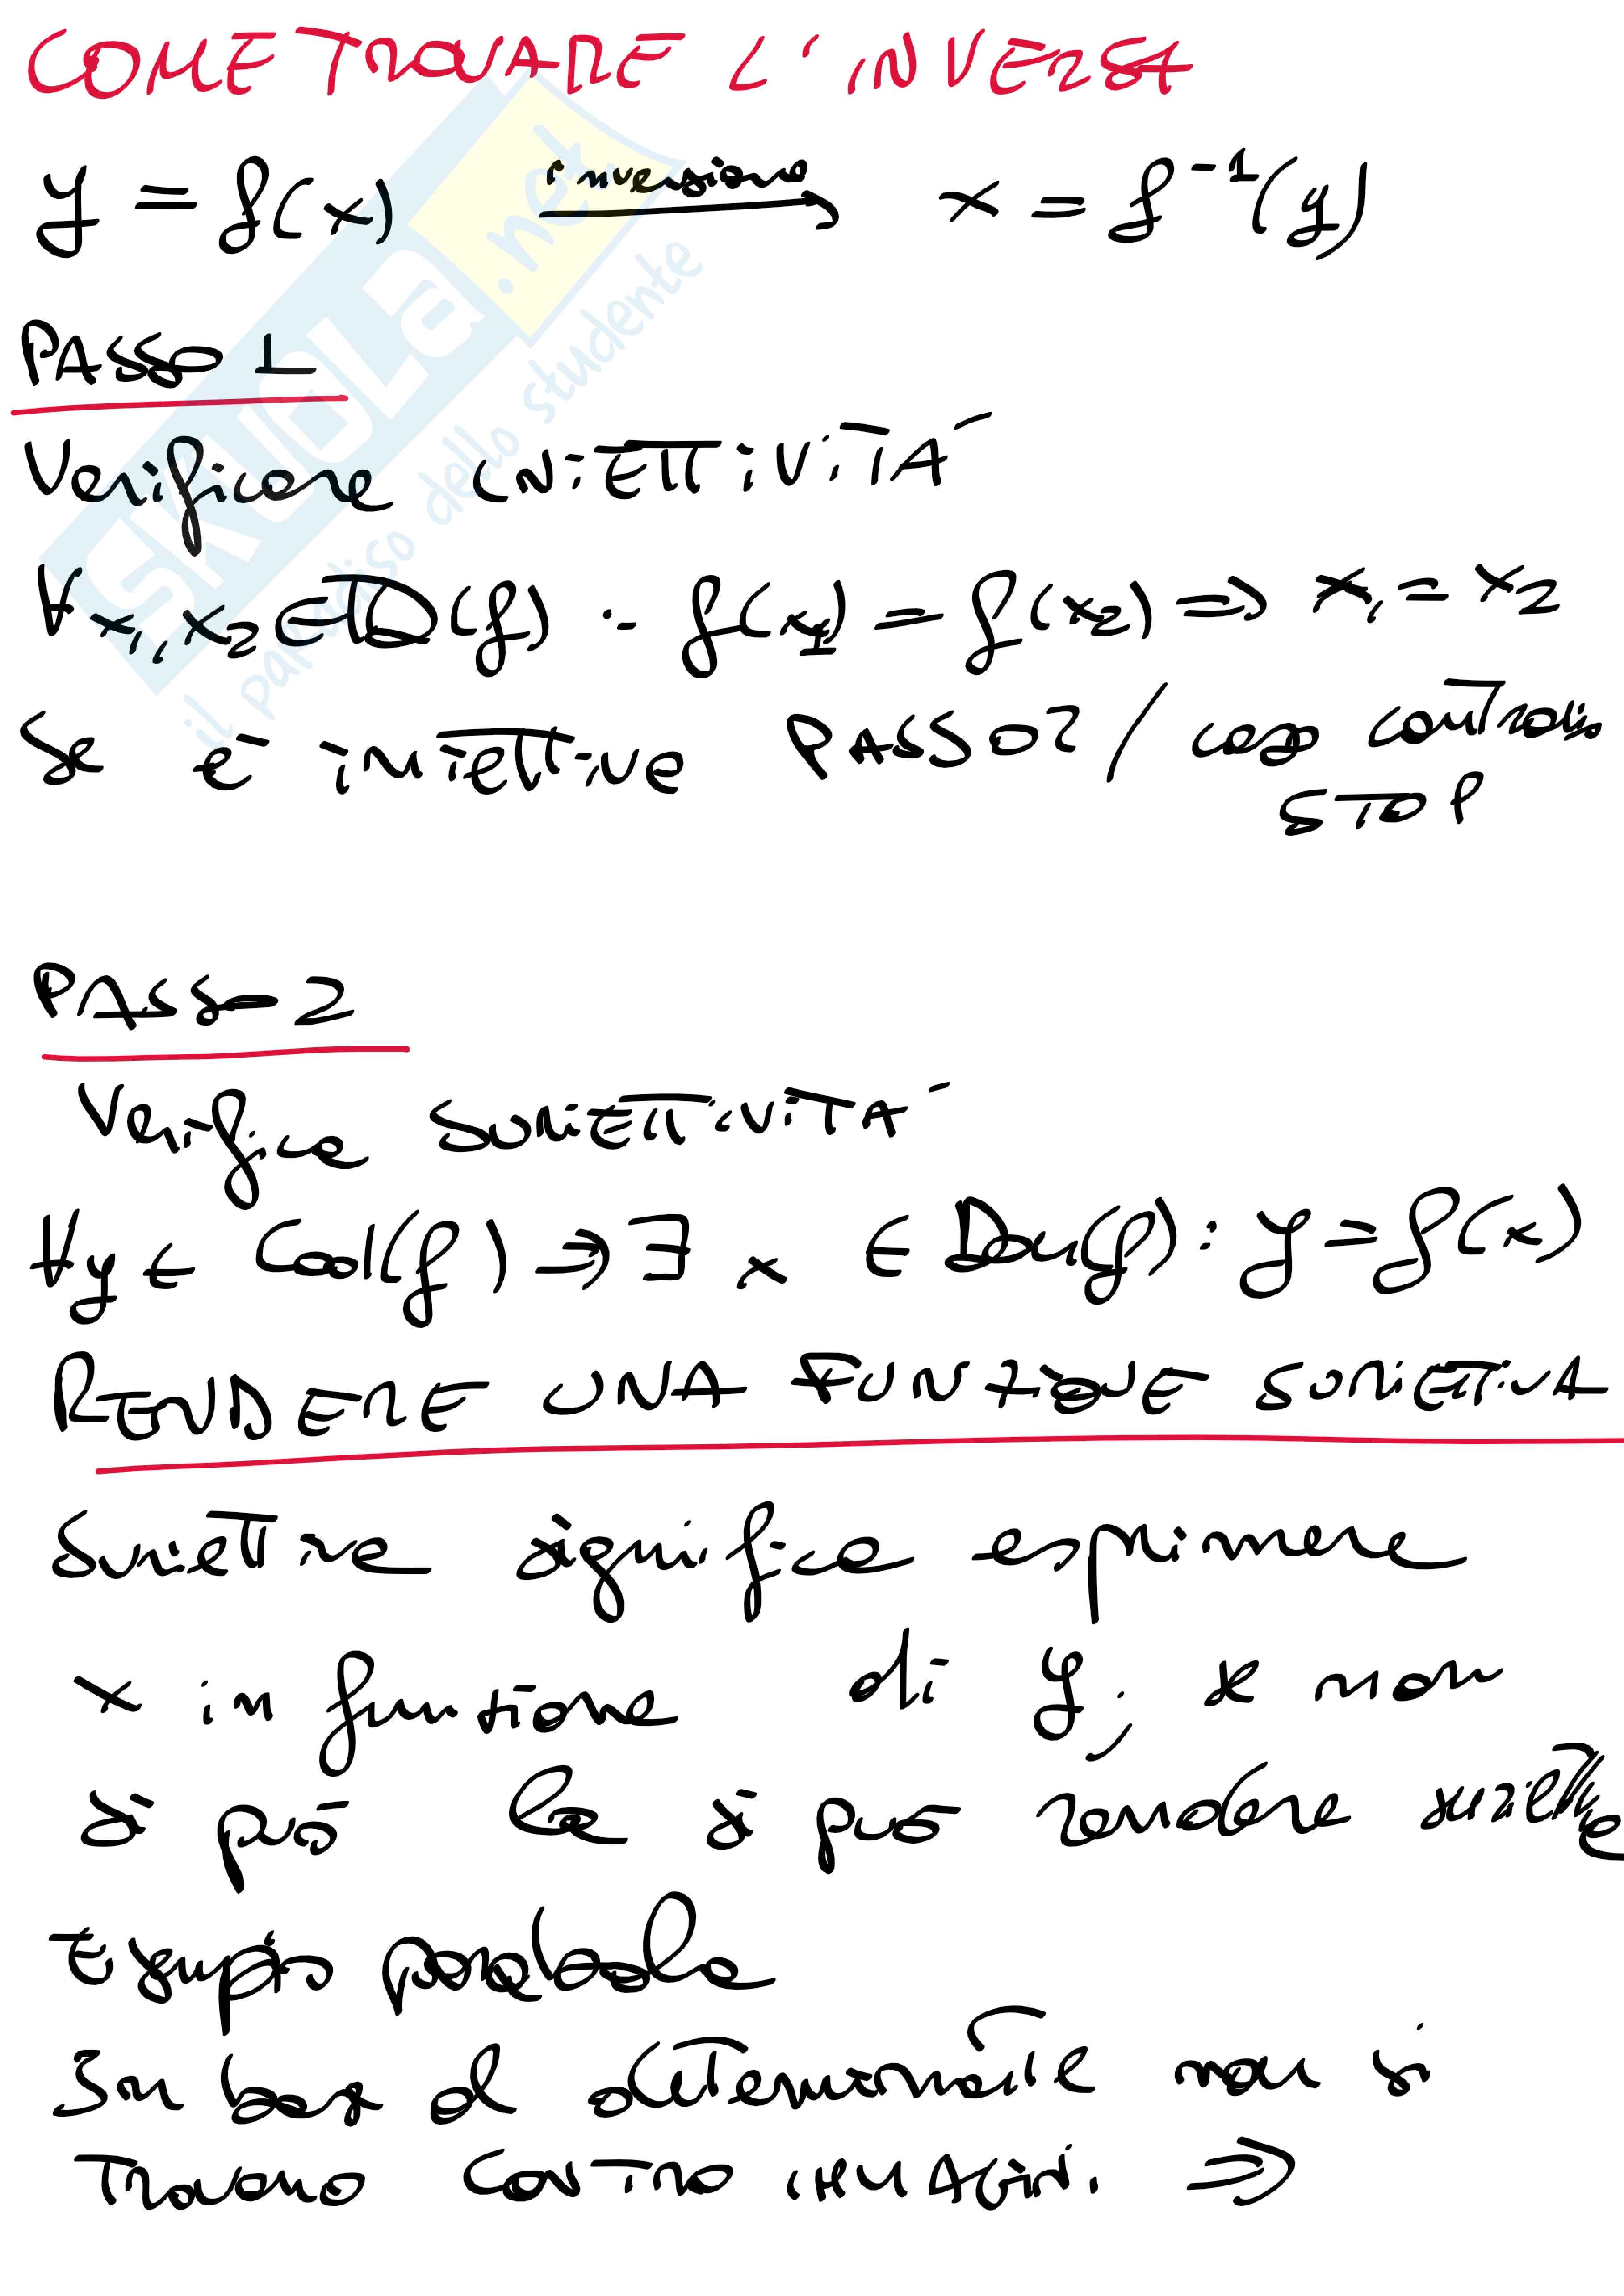 COME TROVARE L'INVERSA
y = f(x) inversione x = f⁻¹(y)
PASSO 1
Verificare INIETTIVITA'
∀x₁,x₂ ∈ D(f) : f(x₁) = f(x₂) ⇒ x₁ = x₂
Se e' iniettiva PASSO 2 / caso contrario
STOP
PASSO 2
Verifica SURIETTIVITA'
∀y ∈ Cod(f) ⇒ ∃ x ∈ Dom(f) : y = f(x)
RENDERE UNA FUNZIONE SURIETTIVA
Suriettiva significa esprimere
x in funzione di y, se non
si può la si può rendere suriettiva
Esempio parabola
In base al determinante non si
trovano CONTRO IMMAGINI. ⇒
SKUOLA.net
il paradiso dello studente